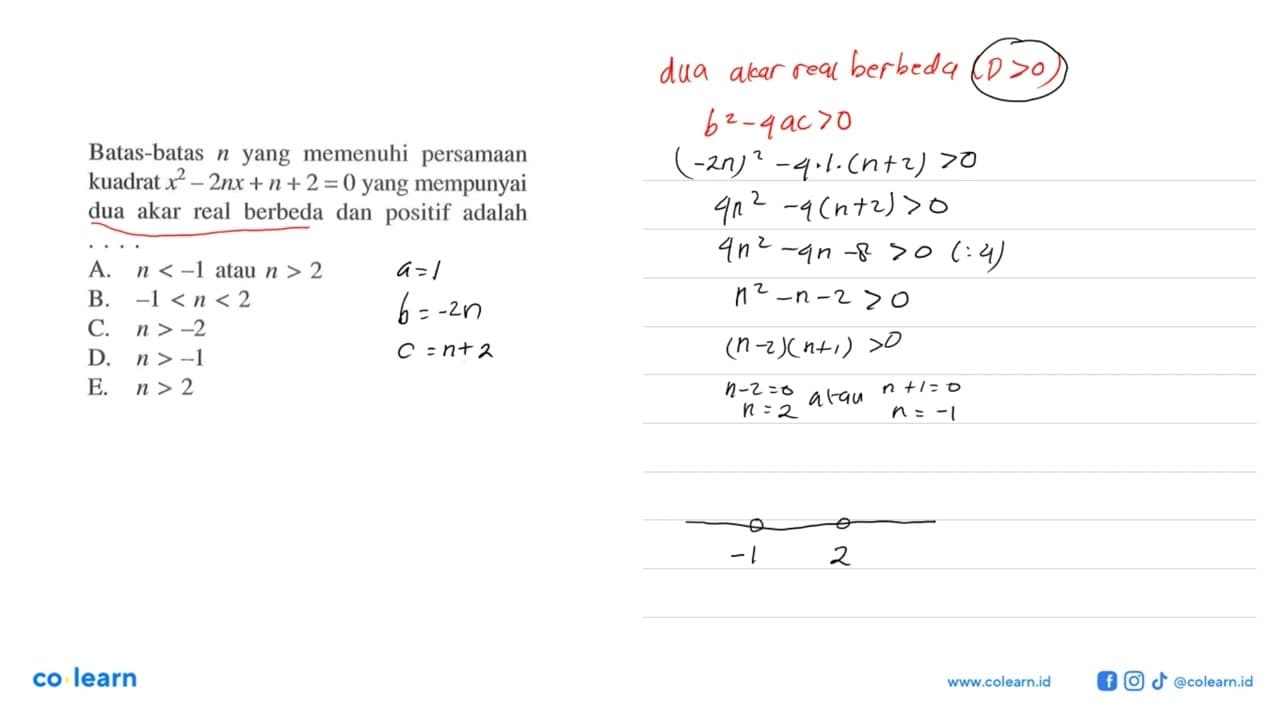 Batas-batas n yang memenuhi persamaan
kuadrat x² – 2nx + n + 2 = 0 yang mempunyai
dua akar real berbeda dan positif adalah
. . . .
A. n < –1 atau n > 2
B. –1 < n < 2
C. n > –2
D. n > –1
E. n > 2
a = 1
b = -2n
c = n+2
dua akar real berbeda (D>0)
b² - 4ac > 0
(-2n)² - 4.1.(n+2) > 0
4n² - 4(n+2) > 0
4n² - 4n - 8 > 0 (:4)
n² - n - 2 > 0
(n-2)(n+1) > 0
n-2=0 atau n+1=0
n=2 n=-1
-1 2
co learn
www.colearn.id @colearn.id